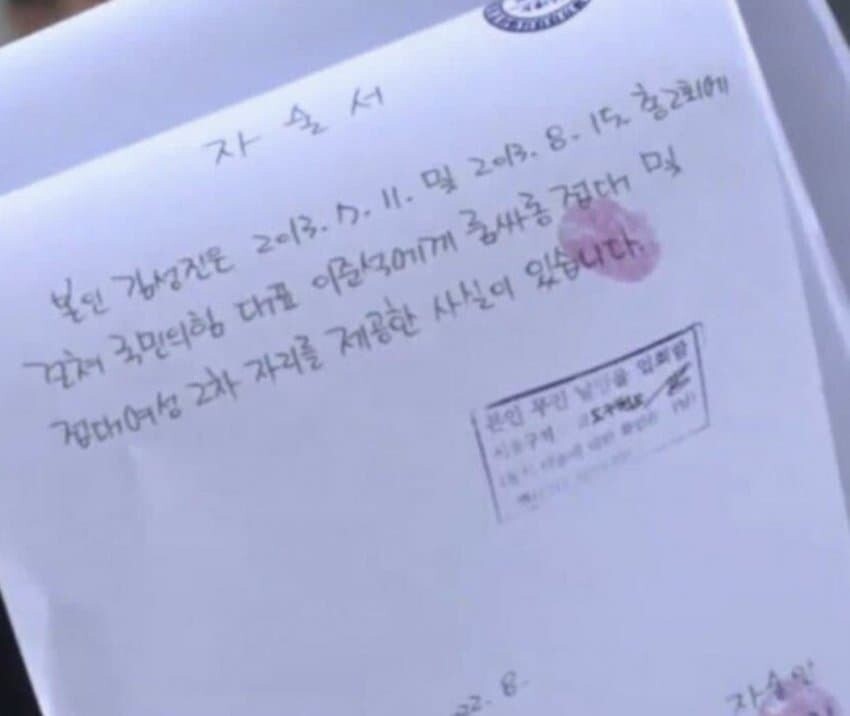 자술서
본인 김성진은 2013. 7. 11. 및 2013. 8. 15. 총2회에
걸쳐 국민의힘 대표 이준석에게 룸싸롱 접대 및
접대여성 2차 자리를 제공한 사실이 있습니다.
본인 무인 날인을 입회함
22. 8.
자술인